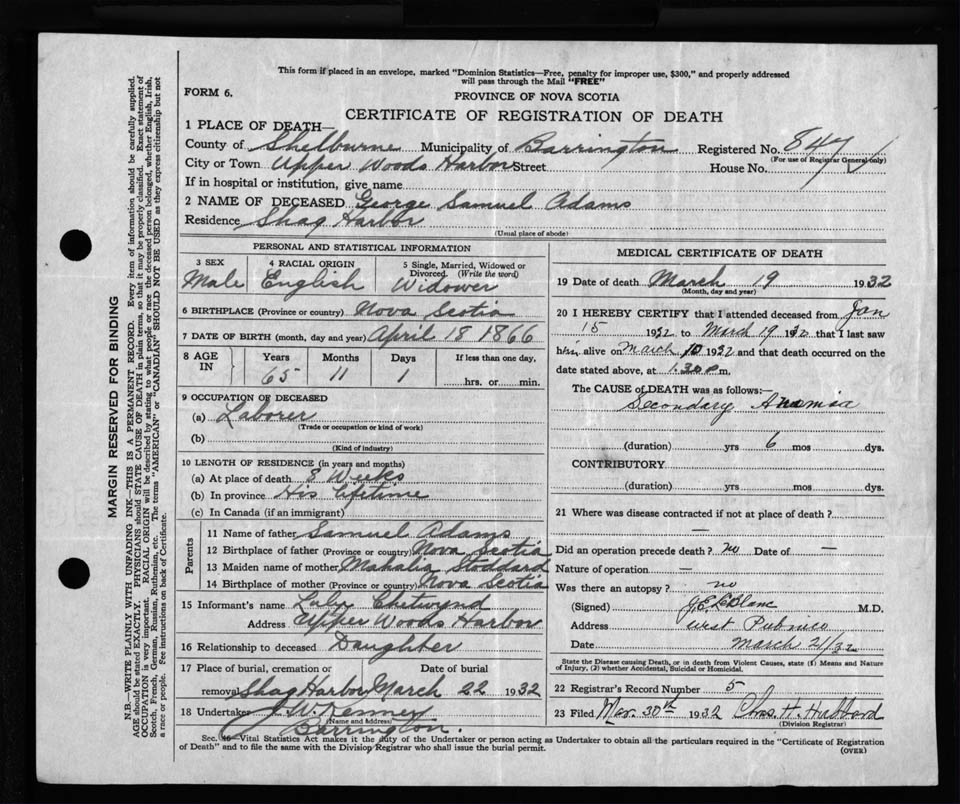 This form if placed in an envelope, marked "Dominion Statistics—Free, penalty for improper use, $300," and properly addressed
will pass through the Mail "FREE"
FORM 6.
PROVINCE OF NOVA SCOTIA
CERTIFICATE OF REGISTRATION OF DEATH
1 PLACE OF DEATH—
County of Shelburne Municipality of Barrington Registered No.
(For use of Registrar General only)
City or Town Upper Woods Harbor Street House No.
If in hospital or institution, give name
2 NAME OF DECEASED George Samuel Adams
Residence Shag Harbor
(Usual place of abode)
PERSONAL AND STATISTICAL INFORMATION
3 SEX 4 RACIAL ORIGIN 5 Single, Married, Widowed or
Divorced. (Write the word)
Male English Widower
6 BIRTHPLACE (Province or country) Nova Scotia
7 DATE OF BIRTH (month, day and year) April 18 1866
8 AGE IN Years Months Days If less than one day,
65 11 1 hrs. or min.
9 OCCUPATION OF DECEASED
(a) Laborer
(Trade or occupation or kind of work)
(b)
(Kind of industry)
10 LENGTH OF RESIDENCE (in years and months)
(a) At place of death 8 Weeks
(b) In province His lifetime
(c) In Canada (if an immigrant)
Parents
11 Name of father Samuel Adams
12 Birthplace of father (Province or country) Nova Scotia
13 Maiden name of mother Mahalia Stoddard
14 Birthplace of mother (Province or country) Nova Scotia
15 Informant's name Chetwynd
Address Upper Woods Harbor
16 Relationship to deceased Daughter
17 Place of burial, cremation or Date of burial
removal Shag Harbor March 22 1932
18 Undertaker J. W. Kenney
(Name and Address)
Barrington.
MEDICAL CERTIFICATE OF DEATH
19 Date of death March 19 1932
(Month, day and year)
20 I HEREBY CERTIFY that I attended deceased from Jan
15 1932 to March 19 1932 that I last saw
him alive on March 10 1932 and that death occurred on the
date stated above, at 1.30 P m.
The CAUSE OF DEATH was as follows:—
Secondary
(duration) yrs 6 mos dys.
CONTRIBUTORY
(duration) yrs mos dys.
21 Where was disease contracted if not at place of death?
—
Did an operation precede death? no Date of —
Nature of operation —
Was there an autopsy? no
(Signed) J E LeBlanc M.D.
Address West Pubnico
Date March 21/32
State the Disease causing Death, or in death from Violent Causes, state (1) Means and Nature
of Injury, (2) whether Accidental, Suicidal or Homicidal.
22 Registrar's Record Number 5
23 Filed Mar. 30th 1932 Chas. H. Hubbard
(Division Registrar)
Sec. 46—Vital Statistics Act makes it the duty of the Undertaker or person acting as Undertaker to obtain all the particulars required in the "Certificate of Registration
of Death" and to file the same with the Division Registrar who shall issue the burial permit.
(OVER)
MARGIN RESERVED FOR BINDING
N.B.—WRITE PLAINLY WITH UNFADING INK—THIS IS A PERMANENT RECORD. Every item of information should be carefully supplied.
AGE should be stated EXACTLY. PHYSICIANS should STATE CAUSE OF DEATH in plain terms, so that it may be properly classified. Exact statement of
OCCUPATION is very important. RACIAL ORIGIN will be described by stating to what people or race the deceased person belonged, whether English, Irish,
Scotch, French, German, Russian, Ruthenian, etc. The terms "AMERICAN" or "CANADIAN" SHOULD NOT BE USED as they express citizenship but not
a race or people. Fee instructions on back of Certificate.